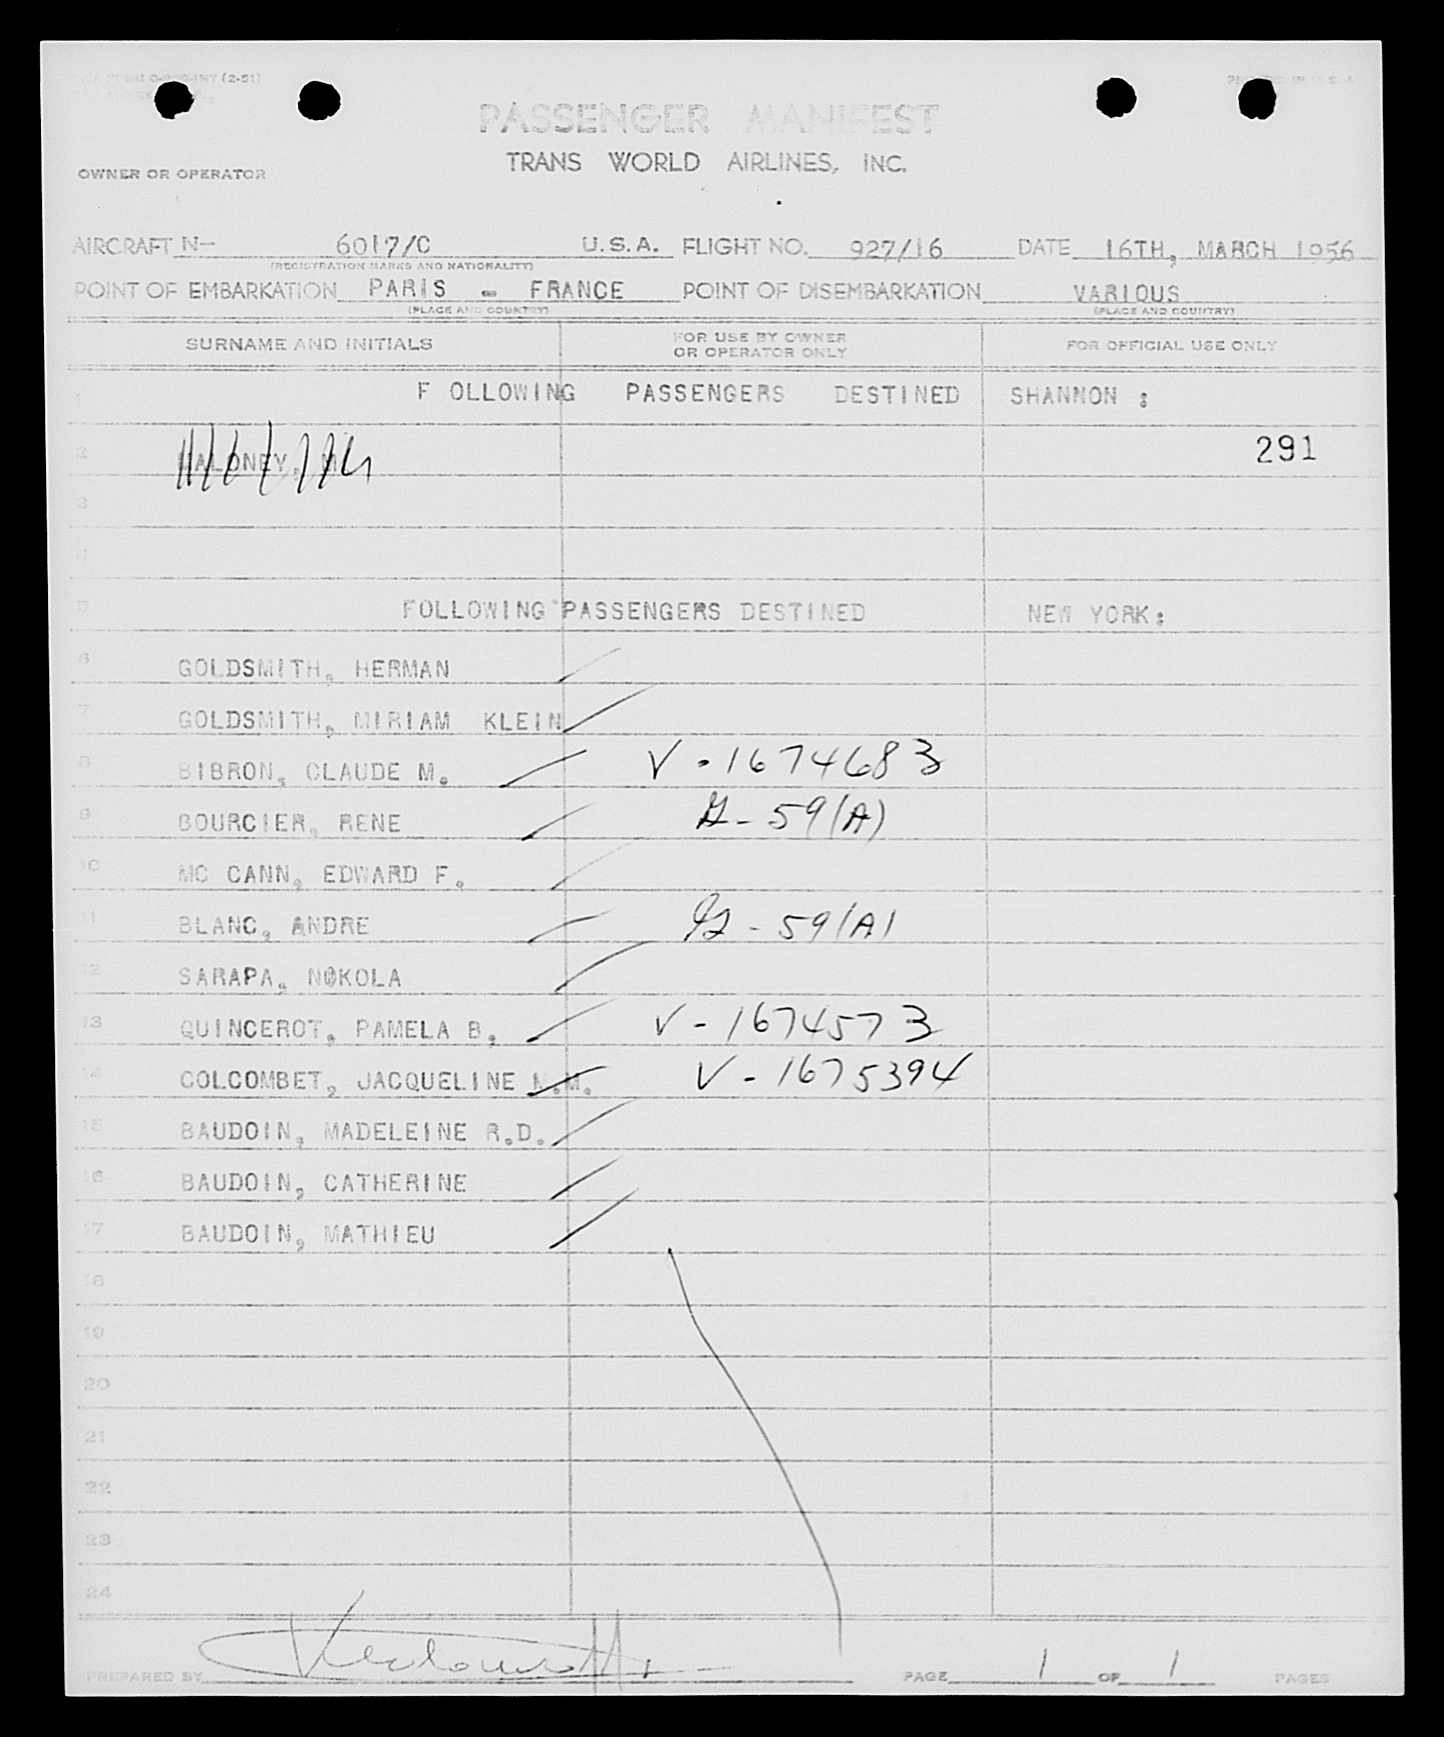 (2-51)
PASSENGER MANIFEST
TRANS WORLD AIRLINES, INC.
OWNER OR OPERATOR
AIRCRAFT N- 6017/C U.S.A. FLIGHT NO. 927/16 DATE 16TH, MARCH 1956
(REGISTRATION MARKS AND NATIONALITY)
POINT OF EMBARKATION PARIS - FRANCE POINT OF DISEMBARKATION VARIOUS
(PLACE AND COUNTRY) (PLACE AND COUNTRY)
SURNAME AND INITIALS FOR USE BY OWNER OR OPERATOR ONLY FOR OFFICIAL USE ONLY
1 F OLLOWING PASSENGERS DESTINED SHANNON :
2 MALONEY, 291
3
4
5 FOLLOWING PASSENGERS DESTINED NEW YORK:
6 GOLDSMITH, HERMAN
7 GOLDSMITH, MIRIAM KLEIN
8 BIBRON, CLAUDE M. V-1674683
9 BOURCIER, RENE G-59(A)
10 MC CANN, EDWARD F.
11 BLANC, ANDRE G-59(A)
12 SARAPA, NOKOLA
13 QUINCEROT, PAMELA B. V-1674573
14 COLCOMBET, JACQUELINE M.M. V-1675394
15 BAUDOIN, MADELEINE R.D.
16 BAUDOIN, CATHERINE
17 BAUDOIN, MATHIEU
18
19
20
21
22
23
24
PREPARED BY PAGE 1 OF 1 PAGES